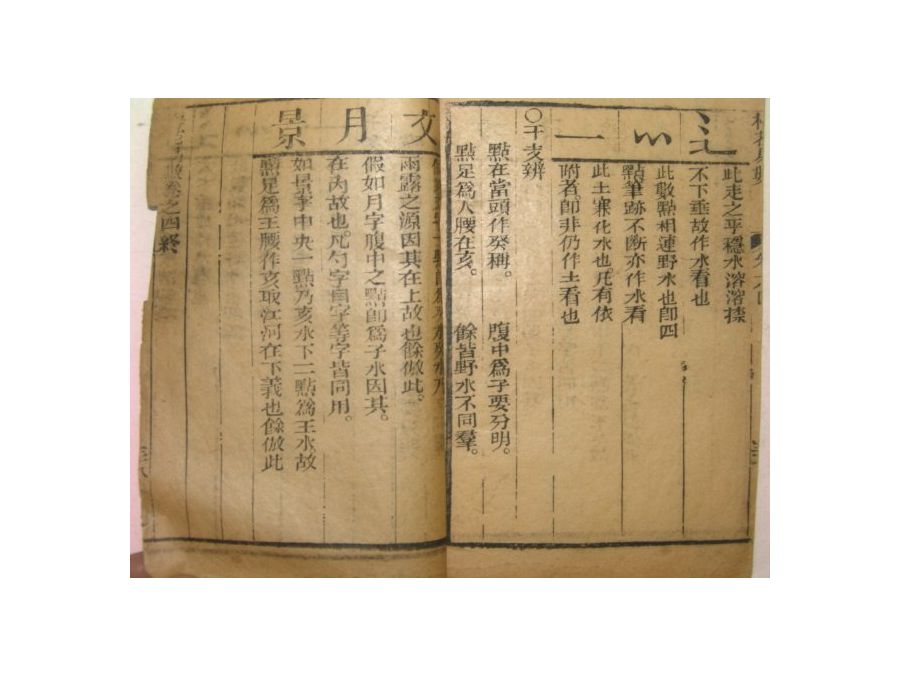 辶 灬 一
此走之平穩水溶溶樣
不下垂故作水看也
此數點相連野水也卽四
點筆跡不斷亦作水看
此土寒化水也凡有依
附者卽非仍作土看也
〇干支辨
點在當頭作癸稱。 腹中爲子要分明。
點足爲人腰在亥。 餘皆野水不同羣。
文 月 景
雨露之源因其在上故也餘倣此。
假如月字腹中之點卽爲子水因其。
在內故也。凡勺字自字等字皆同用。
如景字中央一點乃亥水下二點爲壬水故
點足爲壬腰作亥取江河在下義也餘倣此
卷之四終